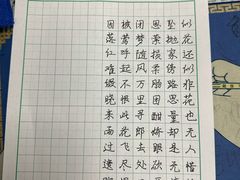 似花还似非花也无人惜
坠抛家傍路思量却是无
思萦损柔肠困酣娇眼欲
闭梦随风万里寻郎去处
被莺呼起不恨此花飞尽
园落红难缀晓来雨过遗